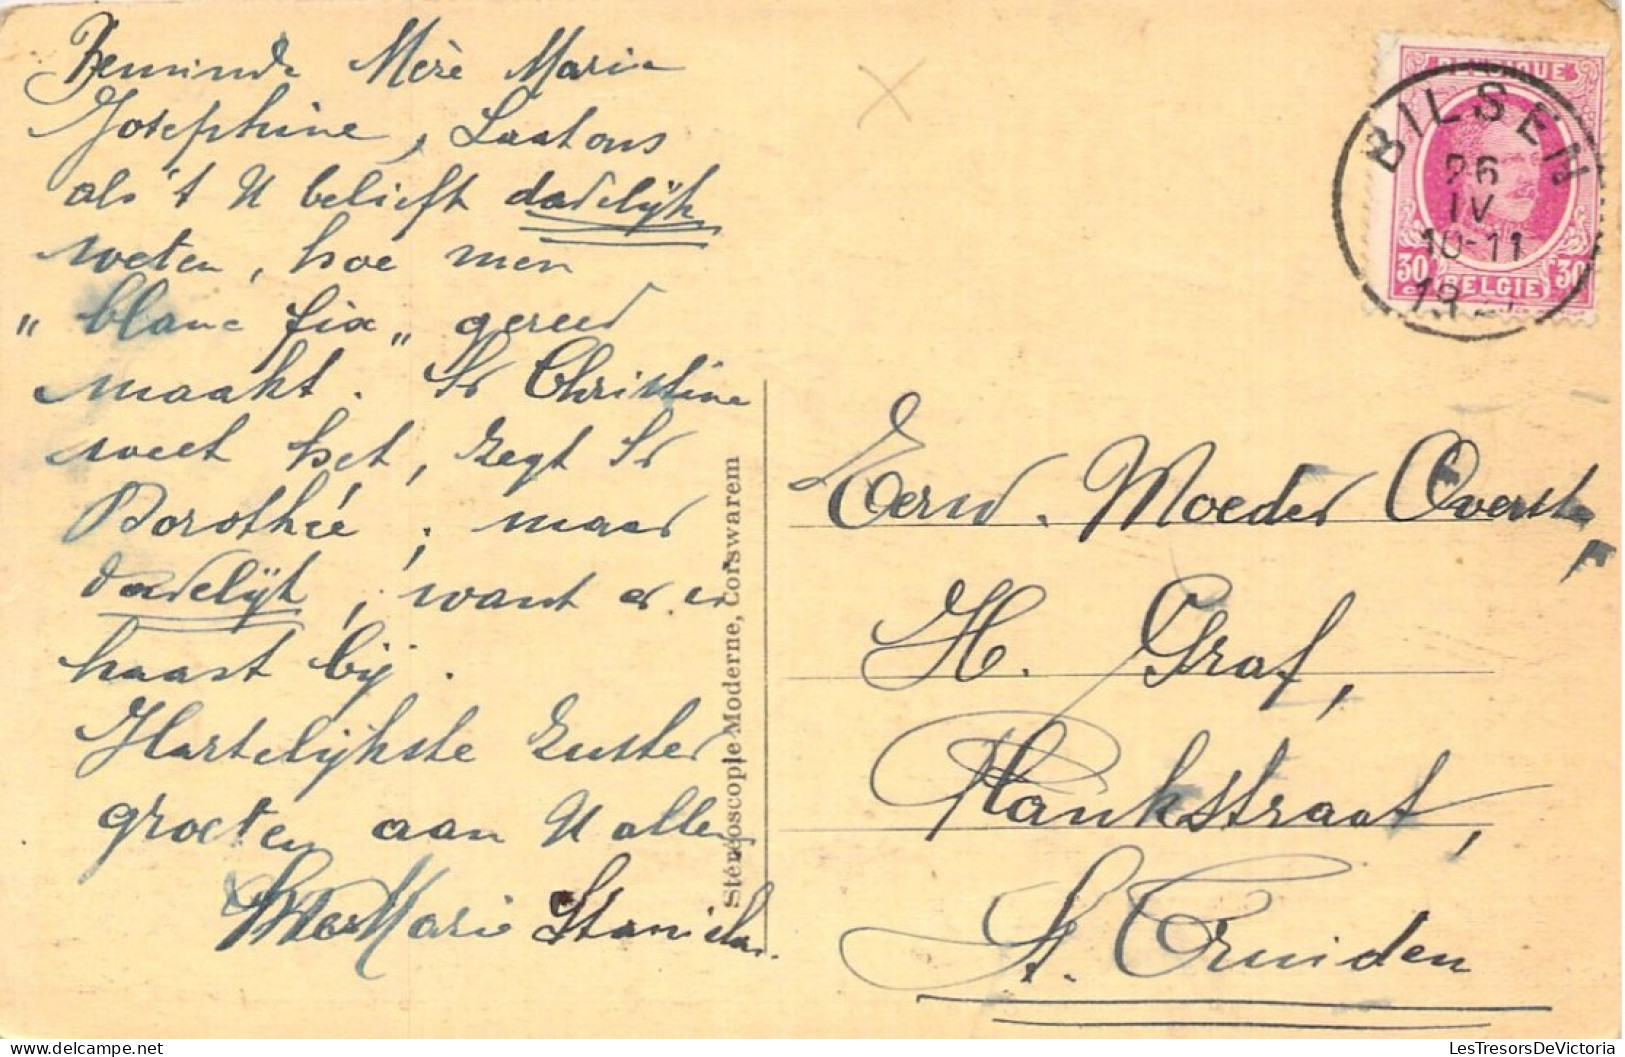 Beminde Mère Marie
Josephine, Laat ons
als 't U belieft dadelijk
weten, hoe men
„ blanc fix „ gereed
maakt. Sr Christine
weet het, zegt Sr
Dorothée; maar
dadelijk, want er is
haast bij.
Hartelijkste Zuster
groeten aan U allen
Zuster Marie Stanislas.
Stéréoscopie Moderne, Corswarem
BELGIQUE
30 c BELGIE 30 c
BILSEN
26
IV
10-11
19
Eerw. Moeder Overste,
H. Graf,
Plankstraat,
St. Truiden
LesTresorsDeVictoria